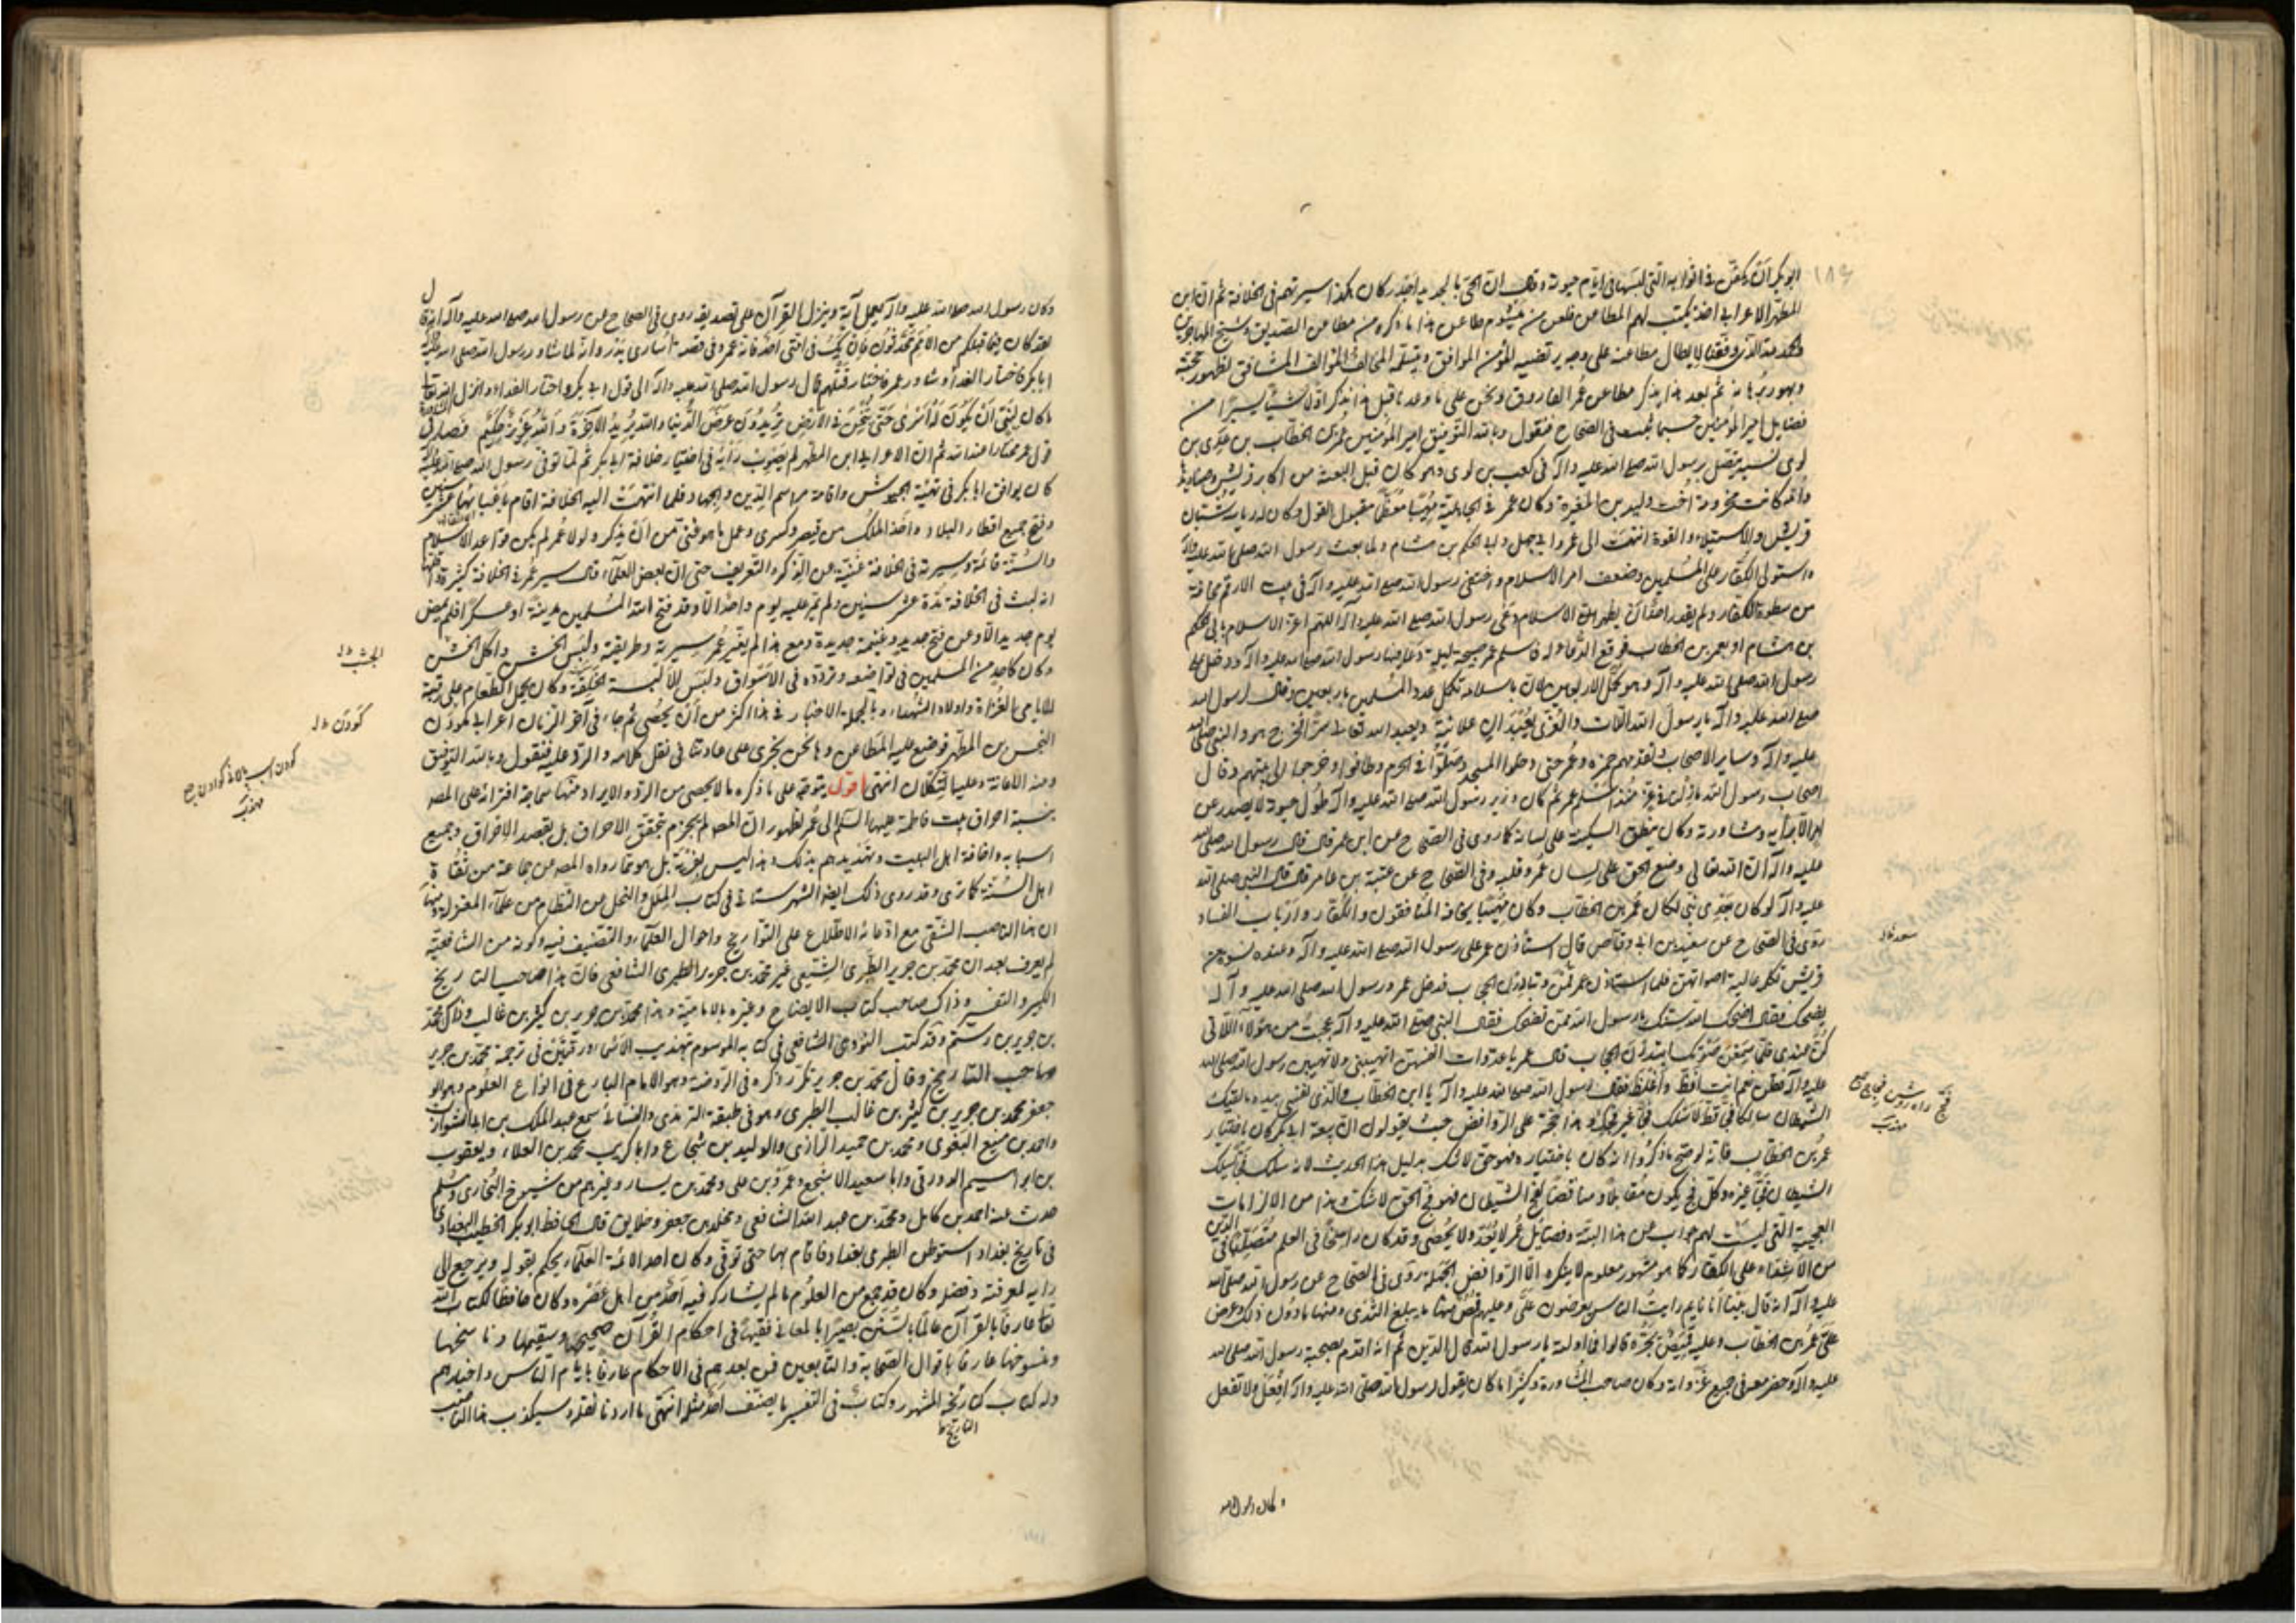 ابو بكر ان يكفن في اثوابه التي لبسها في ايام حيوته وقال ان الحي بالجديد اجدر وكان هكذا سيرتهم في الخلافة ثم ان ابن
المطهر الاعرابي اخذ يكتب لهم المطاعن فلعن من مطاعن هذا ما ذكره من مطاعن الصديق وشيخ المهاجرين
وقد وفقنا لابطال مطاعنه على وجه يرتضيه المؤمن الموافق ويتسلمه المخالف المشاقق لظهور حجته
وبهور برهانه ثم بعد هذا يذكر مطاعن عمر الفاروق ونحن على ما وعدنا قبل هذا نذكر اولا شيئا يسيرا من
فضايل امير المؤمنين حسبما ثبت في الصحاح فنقول وبالله التوفيق امير المؤمنين عمر بن الخطاب بن عدي بن
لوي نسبه يتصل برسول الله صلى الله عليه وآله في كعب بن لوي وهو كان قبل البعثة من اكابر قريش وصناديدها
وامه كانت مخزومية اخت وليد بن المغيرة وكان عمر في الجاهلية مهيبا معظما مقبول القول وكان
قريش والاستيلاء والقوة انتهت الى عمر وابي جهل وابي الحكم بن هشام ولما بعث رسول الله صلى الله عليه وآله
واستولى الكفار على المسلمين وضعف امر الاسلام واختفى رسول الله صلى الله عليه وآله في بيت الارقم مخافة
من سطوة الكفار ولم يقدر احد ان يظهر الاسلام دعى رسول الله صلى الله عليه وآله اللهم اعز الاسلام بابي الحكم
بن هشام او بعمر بن الخطاب فوقع الدعاء له فاسلم عمر صبيحة ليلة دعا فيها رسول الله صلى الله عليه وآله ودخل على
رسول الله صلى الله عليه وآله وهو مكمل الاربعين لان باسلامه تكمل عدد المسلمين باربعين وقال لرسول الله
صلى الله عليه وآله يا رسول الله اللات والعزى يعبدان علانية ويعبد الله تعالى سرا فخرج هو والنبي صلى الله
عليه وآله وساير الاصحاب تقدمهم حمزة وعمر حتى دخلوا المسجد وصلوا في الحرم وطافوا وخرجوا الى بيتهم وقال
اصحاب رسول الله ما زلنا في عزة منذ اسلم عمر ثم كان وزير رسول الله صلى الله عليه وآله طول حيوته لا يصدر عن
امر الا برايه ومشاورته وكان ينطق السكينة على لسانه كما روى في الصحاح عن ابن عمر قال قال رسول الله صلى الله
عليه وآله ان الله تعالى وضع الحق على لسان عمر وقلبه وفي الصحاح عن عقبة بن عامر قال قال النبي صلى الله
عليه وآله لو كان بعدي نبي لكان عمر بن الخطاب وكان مهيبا يخافه المنافقون والكفار وارباب الفساد
روى في الصحاح عن سعيد بن ابي وقاص قال استاذن عمر على رسول الله صلى الله عليه وآله وعنده نسوة من
قريش تكلمه عالية اصواتهن فلما استاذن عمر قمن وتبادرن الحجاب فدخل عمر ورسول الله صلى الله عليه وآله
يضحك فقال اضحك الله سنك يا رسول الله مم تضحك فقال النبي صلى الله عليه وآله عجبت من هؤلاء اللاتي
كن عندي فلما سمعن صوتك ابتدرن الحجاب قال عمر يا عدوات انفسهن اتهبنني ولا تهبن رسول الله صلى الله
عليه وآله فقلن نعم انت افظ واغلظ فقال رسول الله صلى الله عليه وآله يا ابن الخطاب والذي نفسي بيده ما لقيك
الشيطان سالكا فجا قط الا سلك فجا غير فجك وهذا حجة على الروافض حيث يقولون ان بيعة ابي بكر كان باختيار
عمر بن الخطاب فانه لو صح ما ذكروا انه كان باختياره فهو حق لا شك بدليل هذا الحديث لانه سلك فجا يسلك
الشيطان فجا غيره وكل فج يكون مقابلا ومناقضا لفج الشيطان فهو فج الحق لا شك وهذا من الالزامات
العجيبة التي ليست لهم جواب عن هذا البتة وفضايل عمر لا يعد ولا يحصى وقد كان راسخا في العلم متصلبا في الدين
من الاشداء على الكفار كما هو مشهور معلوم لا ينكره الا الروافض الجهلة روى في الصحاح عن رسول الله صلى الله
عليه وآله انه قال بينا انا نايم رايت الناس يعرضون علي وعليهم قمص منها ما يبلغ الثدي ومنها ما دون ذلك وعرض
علي عمر بن الخطاب وعليه قميص يجره قالوا فما اولته يا رسول الله قال الدين ثم انه اقدم بصحبة رسول الله صلى الله
عليه وآله وحضر معه في جميع غزواته وكان صاحب المشاورة وكثيرا ما كان يقول لرسول الله صلى الله عليه وآله افعل ولا تفعل
وكان رسول الله
سعد ظ
فج راه روشن فجاج ج
مهذب
وكان رسول الله صلى الله عليه وآله يعمل بقوله وينزل القرآن على تصديقه روى في الصحاح عن رسول الله صلى الله عليه وآله انه قال
لقد كان فيما قبلكم من الامم محدثون فان يك في امتي احد فانه عمر وفي قصة اسارى بدر وانه لما شاور رسول الله صلى الله عليه وآله
ابا بكر فاختار الفداء وشاور عمر فاختار قتلهم قال رسول الله صلى الله عليه وآله الى قول ابي بكر واختار الفداء وانزل الله تعالى
ما كان لنبي ان يكون له اسرى حتى يثخن في الارض تريدون عرض الدنيا والله يريد الآخرة والله عزيز حكيم فصار في
قول عمر مختارا عند الله ثم ان الاعرابي ابن المطهر لم يصوب رايه في اختيار خلافة ابي بكر ثم لما توفى رسول الله صلى الله عليه وآله
كان يوافق ابا بكر في تهيئة الجيوش واقامة مراسم الدين والجهاد فلما انتهت اليه الخلافة اقام باعبائها عشر سنين
وفتح جميع اقطار البلاد واخذ الملك من قيصر وكسرى وعمل ما هو غني من ان يذكر ولولا عمر لم يكن قواعد الاسلام
والسنة قائمة وسيرته في الخلافة غنية عن الذكر والتعريف حتى ان بعض العلماء قال سير عمر في الخلافة كثيرة
انه لبث في الخلافة مدة عشر سنين ولم يمر عليه يوم واحد الا وقد فتح الله للمسلمين مدينة او عسكرا فلم يمض
يوم جديد الا وعن فتح جديد وغنيمة جديدة ومع هذا لم يغير عمر سيرته وطريقته ولبس الخشن واكل الخشن
وكان كاحد من المسلمين في تواضعه وتردده في الاسواق ولبس الالبسة الخلقة وكان يحمل الطعام على رقبته
للايامى الغزاة واولاد الشهداء وبالجملة الاخبار في هذا اكثر من ان يحصى ثم جاء في آخر الزمان اعرابي كودن
النجس بن المطهر فوضع عليه المطاعن وها نحن نجري على عادتنا في نقل كلامه والرد عليه فنقول وبالله التوفيق
ومنه الاعانة وعليه التكلان انتهى اقول يتوجه على ما ذكره ما لا يحصى من الرد والايراد منها سماجة افترائه على المصـ
بنسبة احراق بيت فاطمة عليها السلم الى عمر لظهور ان المصـ لم يجزم بتحقق الاحراق بل بقصد الاحراق وجميع
اسبابه واخافة اهل البيت وتهديدهم بذلك وهذا ليس بفرية بل هو مما رواه المصـ عن جماعة من ثقاة
اهل السنة كما ترى وقد روى ذلك ايضا الشهرستاني في كتاب الملل والنحل عن النظام من علماء المعتزلة ومنها
ان هذا الناصب الشقي مع ادعائه الاطلاع على التواريخ واحوال العلماء والتصنيف فيه وكونه من الشافعية
لم يعرف بعد ان محمد بن جرير الطبري الشيعي غير محمد بن جرير الطبري الشافعي فان هذا صاحب التاريخ
الكبير والتفسير وذاك صاحب كتاب الايضاح وغيره بالامامية وهذا محمد بن جرير بن كثير بن غالب وذاك محمد
بن جرير بن رستم وقد كتب النووي الشافعي في كتابه الموسوم بتهذيب الاسماء ورقتين في ترجمة محمد بن جرير
صاحب التاريخ وقال محمد بن جرير تكرر ذكره في الروضة وهو الامام البارع في انواع العلوم وهو ابو
جعفر محمد بن جرير بن كثير بن غالب الطبري وهو في طبقة الترمذي والنسائي سمع عبد الملك بن ابي الشوارب
واحمد بن منيع البغوي ومحمد بن حميد الرازي والوليد بن شجاع وابا كريب محمد بن العلاء ويعقوب
بن ابراهيم الدورقي وابا سعيد الاشج وعمرو بن علي ومحمد بن يسار وغيرهم من شيوخ البخاري ومسلم
حدث عنه احمد بن كامل ومحمد بن عبد الله الشافعي ومخلد بن جعفر وخلايق قال الحافظ ابو بكر الخطيب البغدادي
في تاريخ بغداد استوطن الطبري بغداد فاقام بها حتى توفى وكان احد الائمة العلماء يحكم بقوله ويرجع الى
رايه لمعرفته وفضله وكان قد جمع من العلوم ما لم يشاركه فيه احد من اهل عصره وكان حافظا لكتاب الله
تعالى عارفا بالقرآن عالما بالسنن بصيرا بالمعاني فقيها في احكام القرآن صحيحها وسقيمها وناسخها
ومنسوخها عارفا باقوال الصحابة والتابعين فمن بعدهم في الاحكام عارفا بايام الناس واخبارهم
وله كتاب تاريخه المشهور وكتاب في التفسير ما يصنف احد مثله انتهى ما اردنا نقله وسيكذب هذا الناصب
التاريخ ظ
الجشب ظ
كودن ظ
كودن اسب پالانى كوادن ج
مهذب